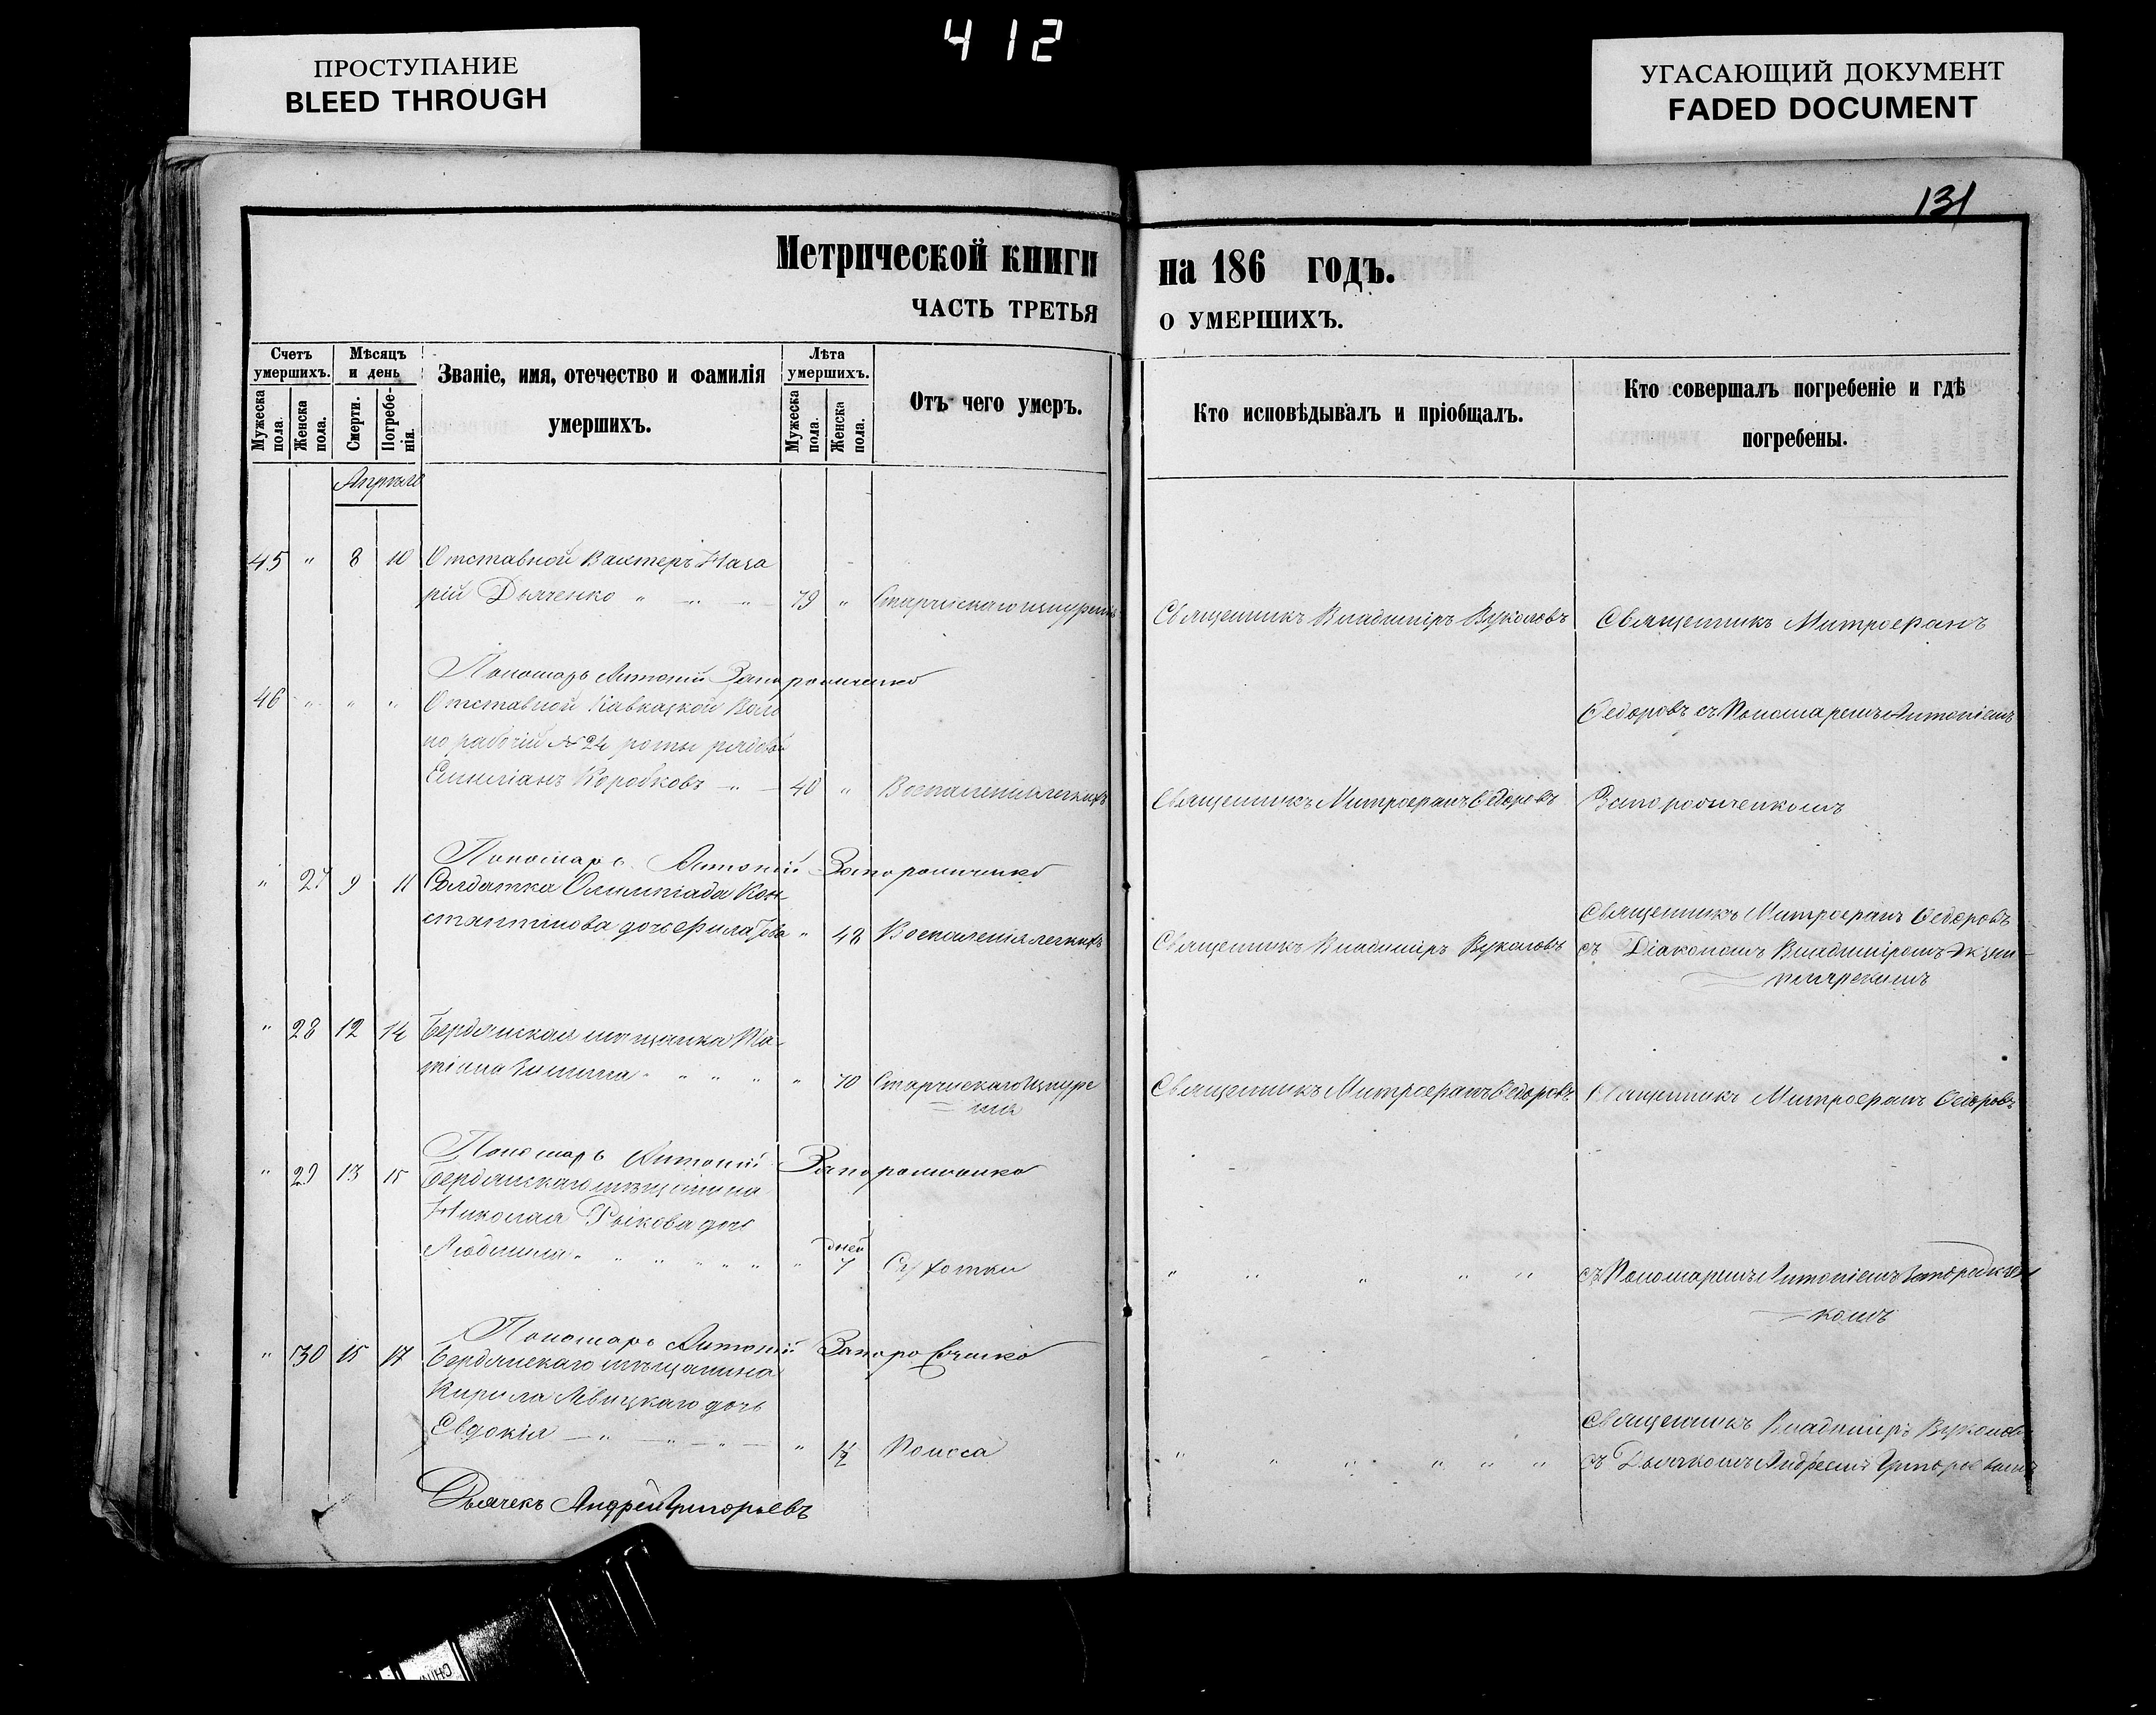 412
ПРОСТУПАНИЕ
BLEED THROUGH
УГАСАЮЩИЙ ДОКУМЕНТ
FADED DOCUMENT
131
Метрической книги на 186 годъ.
ЧАСТЬ ТРЕТЬЯ О УМЕРШИХЪ.
Счетъ умершихъ.
Мужеска пола.
Женска пола.
Мѣсяцъ и день
Смерти.
Погребенія.
Званіе, имя, отечество и фамилія умершихъ.
Лѣта умершихъ.
Мужеска пола.
Женска пола.
Отъ чего умеръ.
Кто исповѣдывалъ и пріобщалъ.
Кто совершалъ погребеніе и гдѣ погребены.
45 " 8 10 Отставной Вахтеръ Наза
рій Дьяченко " " " 79 "
Священникъ Владиміръ Вуколовъ Священникъ Митрофанъ
Пономарь Антоній
46 " " " Отставной Кавказкой
Федоровъ съ Пономаремъ Антоніемъ
но рабочій №24 роты рядовой
Емиліанъ Коробковъ " 40 " Воспаленія легкихъ
Священникъ Митрофанъ Федоровъ
Пономарь Антоній
" 27 9 11 Солдатка Олимпіада Кон
стантинова дочь 48 Воспаленія легкихъ
Священникъ Митрофанъ Федоровъ
Священникъ Владиміръ Вуколовъ съ Діакономъ Владиміромъ
" 28 12 14 Бердянская мѣщанка
" 70 Старческаго изнуре
нія
Священникъ Митрофанъ Федоровъ Священникъ Митрофанъ Федоровъ
Пономарь Антоній
" 29 13 15 Бердянскаго мѣщанина
Николая Рыкова дочь
Людмила " " " " " дней 7 Сухотки
" " " " " съ Пономаремъ Антоніемъ
комъ
Пономарь Антоній
" 30 15 17 Бердянскаго мѣщанина
Кирила Левицкаго дочь
Евдокія " " " " Поноса
Священникъ Владиміръ Вуколовъ
" " " " " " съ Дьячкомъ Андреемъ Григорьевымъ
Дьячекъ Андрей Григорьевъ